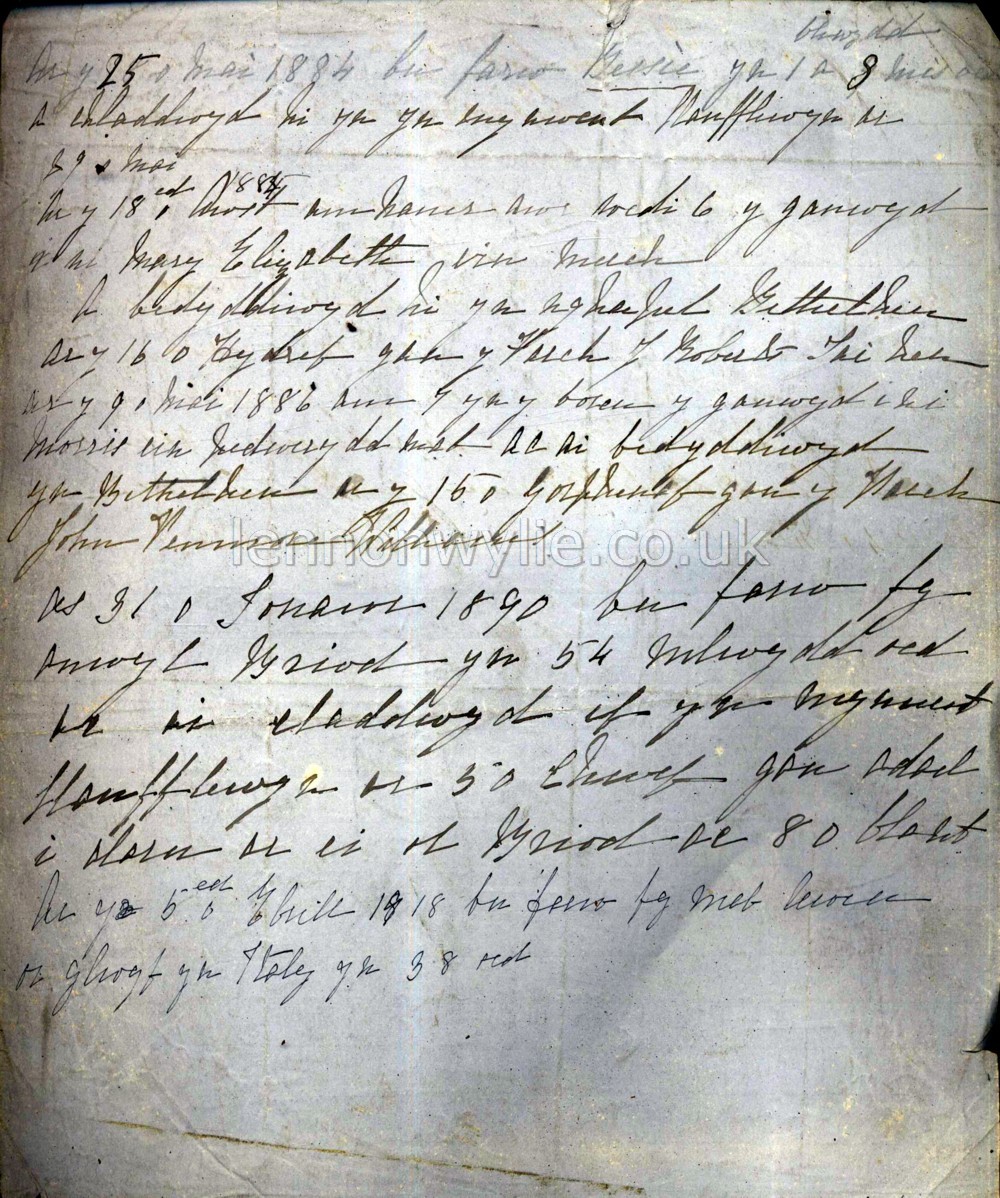 blwydd
Ar y 25 o Mai 1884 bu farw Bessie yn 1 a 3 mis oed
a chladdwyd hi yn yn mynwent Llanfflewyn ar
29 o Mai
Ar y 18ed o Awst 1884 am haner awr wedi 6 y ganwyd
i ni Mary Elizabeth ein merch
A bedyddiwyd hi yn nghapel Bethel hen
ar y 16 o Hydref gan y Parch J Roberts Tai hen
ar y 9 o Mai 1886 am 7 yn y boreu y ganwyd i ni
Morris ein pedwerydd mab ac ai bedyddiwyd
yn Bethel hen ar y 15 o Gorphenaf gan y Parch
John
lennonwylie.co.uk
ar 31 o Ionawr 1890 bu farw fy
anwyl Briod yn 54 mlwydd oed
ac ai claddwyd ef yn mynwent
Llanfflewyn ar 5 o Chwef gan adael
i alaru ar ei ol Briod ac 8 o blant
Ar y 5ed o Ebrill 1918 bu farw fy mab
o'r glwyf yn Italy yn 38 oed